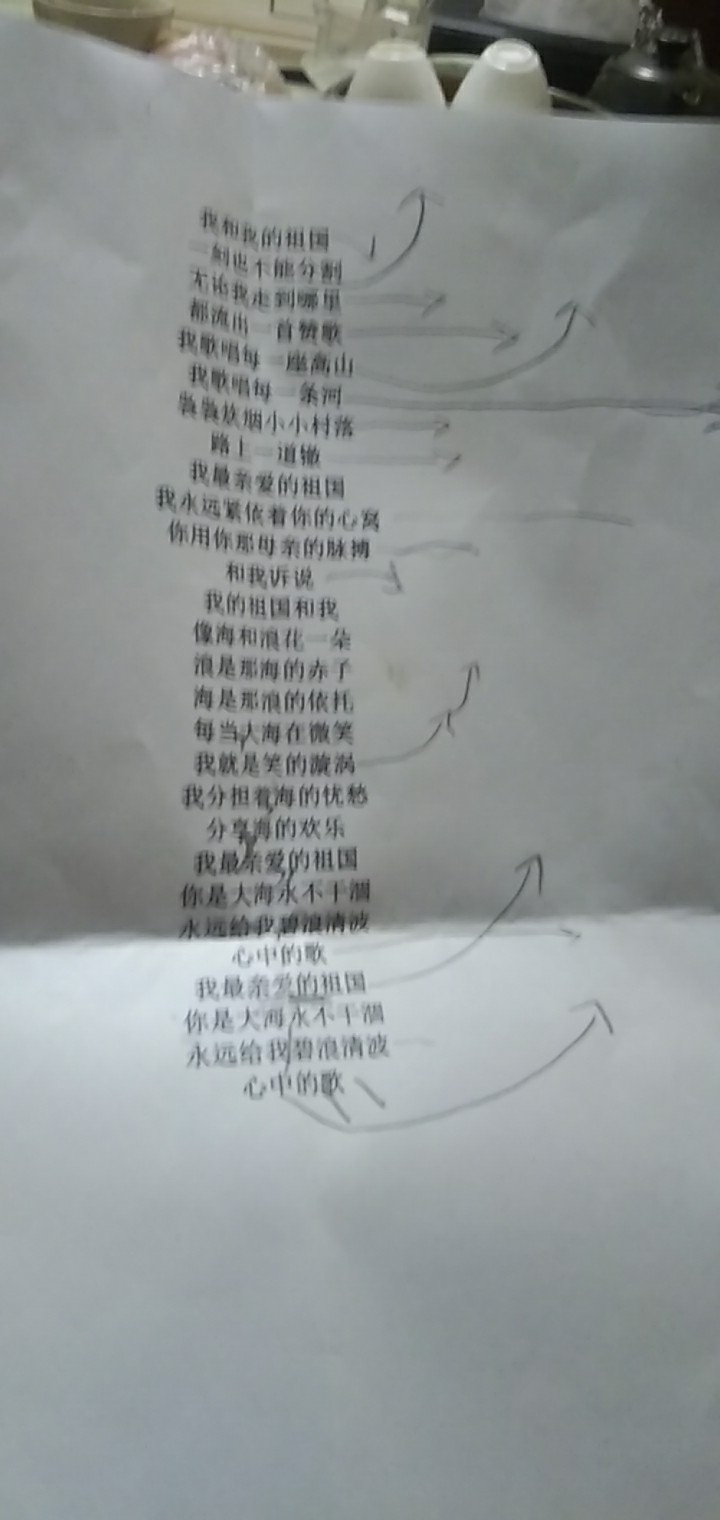 我和我的祖国
一刻也不能分割
无论我走到哪里
都流出一首赞歌
我歌唱每一座高山
我歌唱每一条河
袅袅炊烟小小村落
路上一道辙
我最亲爱的祖国
我永远紧依着你的心窝
你用你那母亲的脉搏
和我诉说
我的祖国和我
像海和浪花一朵
浪是那海的赤子
海是那浪的依托
每当大海在微笑
我就是笑的漩涡
我分担着海的忧愁
分享海的欢乐
我最亲爱的祖国
你是大海永不干涸
永远给我碧浪清波
心中的歌
我最亲爱的祖国
你是大海永不干涸
永远给我碧浪清波
心中的歌